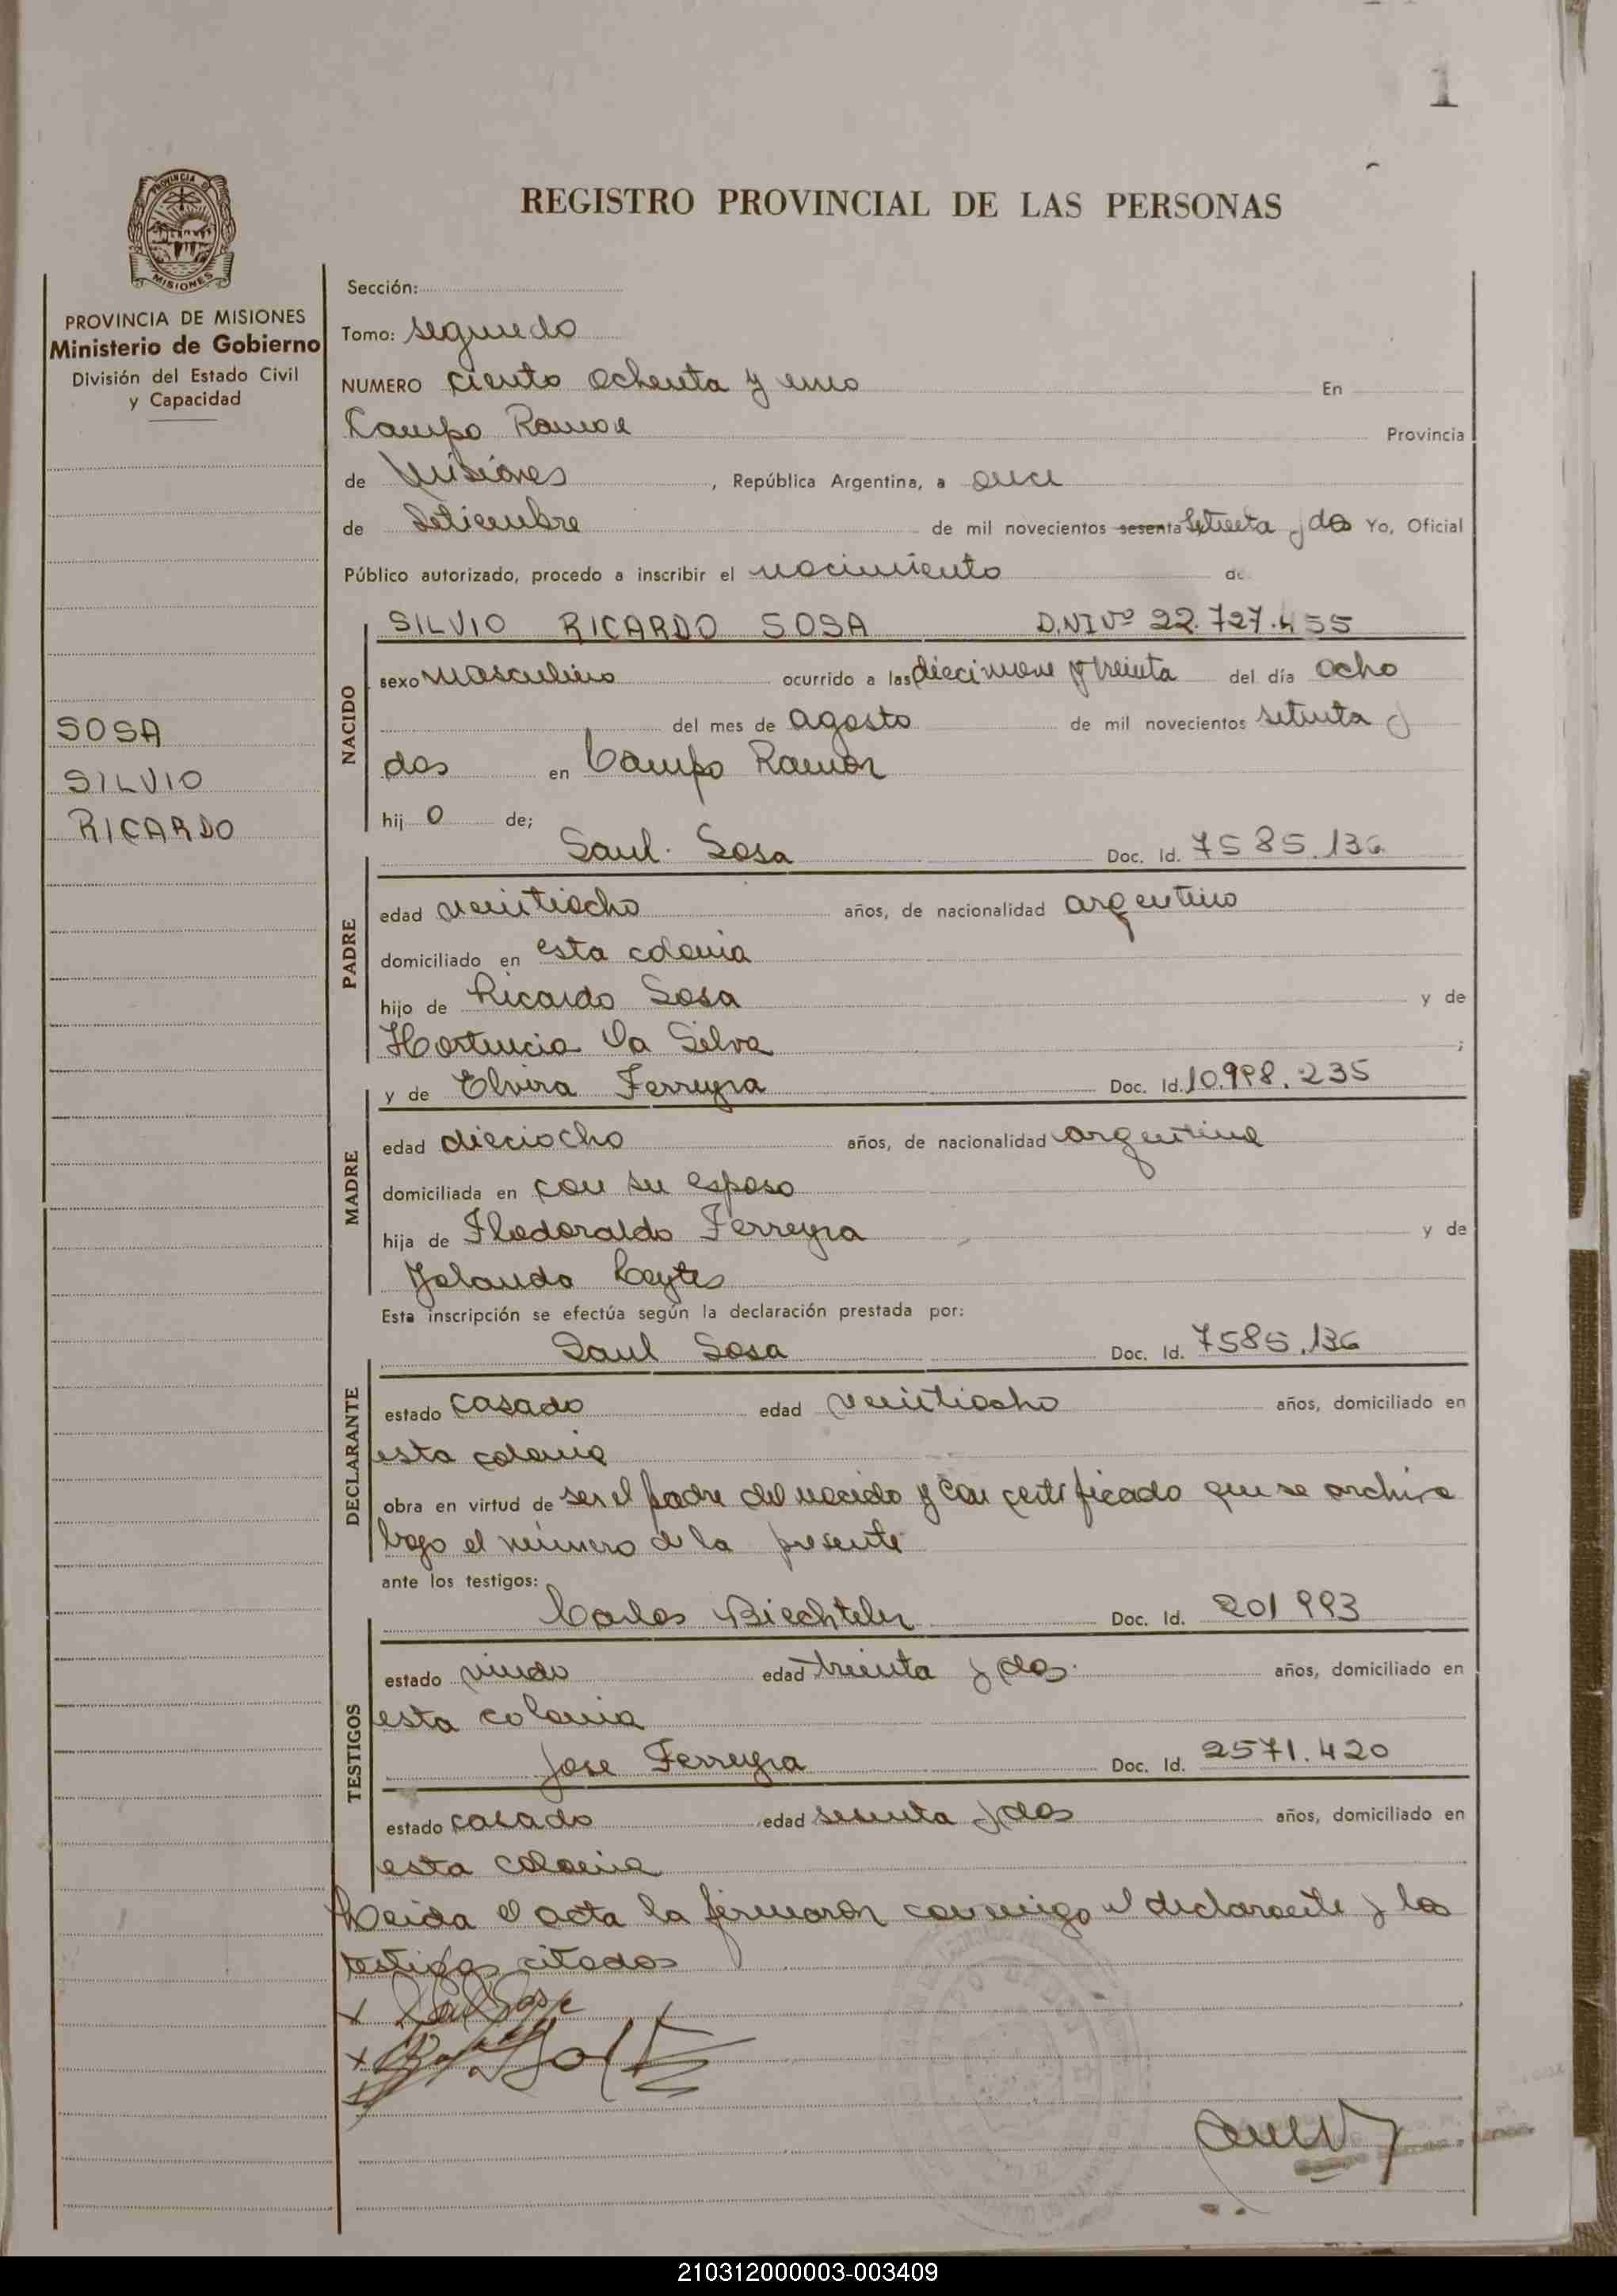 1
PROVINCIA DE
MISIONES
REGISTRO PROVINCIAL DE LAS PERSONAS
PROVINCIA DE MISIONES
Ministerio de Gobierno
División del Estado Civil
y Capacidad
SOSA
SILVIO
RICARDO
Sección:
Tomo: segundo
NUMERO ciento ochenta y uno En
Campo Ramon Provincia
de Misiones, República Argentina, a once
de Setiembre de mil novecientos sesenta setenta y dos Yo, Oficial
Público autorizado, procedo a inscribir el nacimiento de
SILVIO RICARDO SOSA D.N.I Nº 22.727.455
NACIDO
sexo masculino ocurrido a las diecinueve y treinta del día ocho
del mes de agosto de mil novecientos setenta y
dos en Campo Ramon
hij o de;
Saul Sosa Doc. Id. 7585.136
PADRE
edad veintiocho años, de nacionalidad argentino
domiciliado en esta colonia
hijo de Ricardo Sosa y de
Hortencia Da Silva ;
y de Elvira Ferreyra Doc. Id. 10.998.235
MADRE
edad dieciocho años, de nacionalidad argentina
domiciliada en con su esposo
hija de Flodoraldo Ferreyra y de
Yolanda
Esta inscripción se efectúa según la declaración prestada por:
Saul Sosa Doc. Id. 7585.136
DECLARANTE
estado casado edad veintiocho años, domiciliado en
esta colonia
obra en virtud de ser el padre del nacido y con certificado que se archiva
bajo el número de la presente
ante los testigos:
Carlos Biechteler Doc. Id. 201993
TESTIGOS
estado viudo edad treinta y dos años, domiciliado en
esta colonia
Jose Ferreyra Doc. Id. 2571.420
estado casado edad sesenta y dos años, domiciliado en
esta colonia
Leida el acta la firmaron conmigo el declarante y los
testigos citados
x Saul Sosa
x
x
210312000003-003409